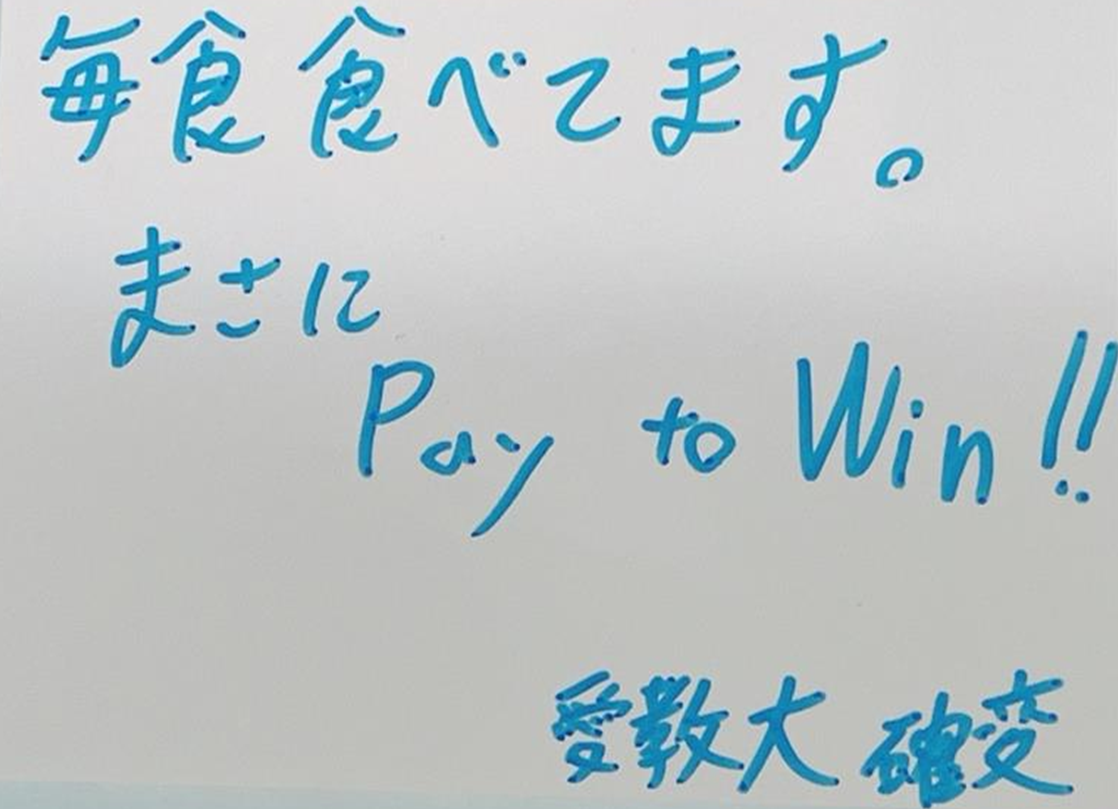 毎食食べてます。
まさに
Pay to Win!!
愛教大 確変